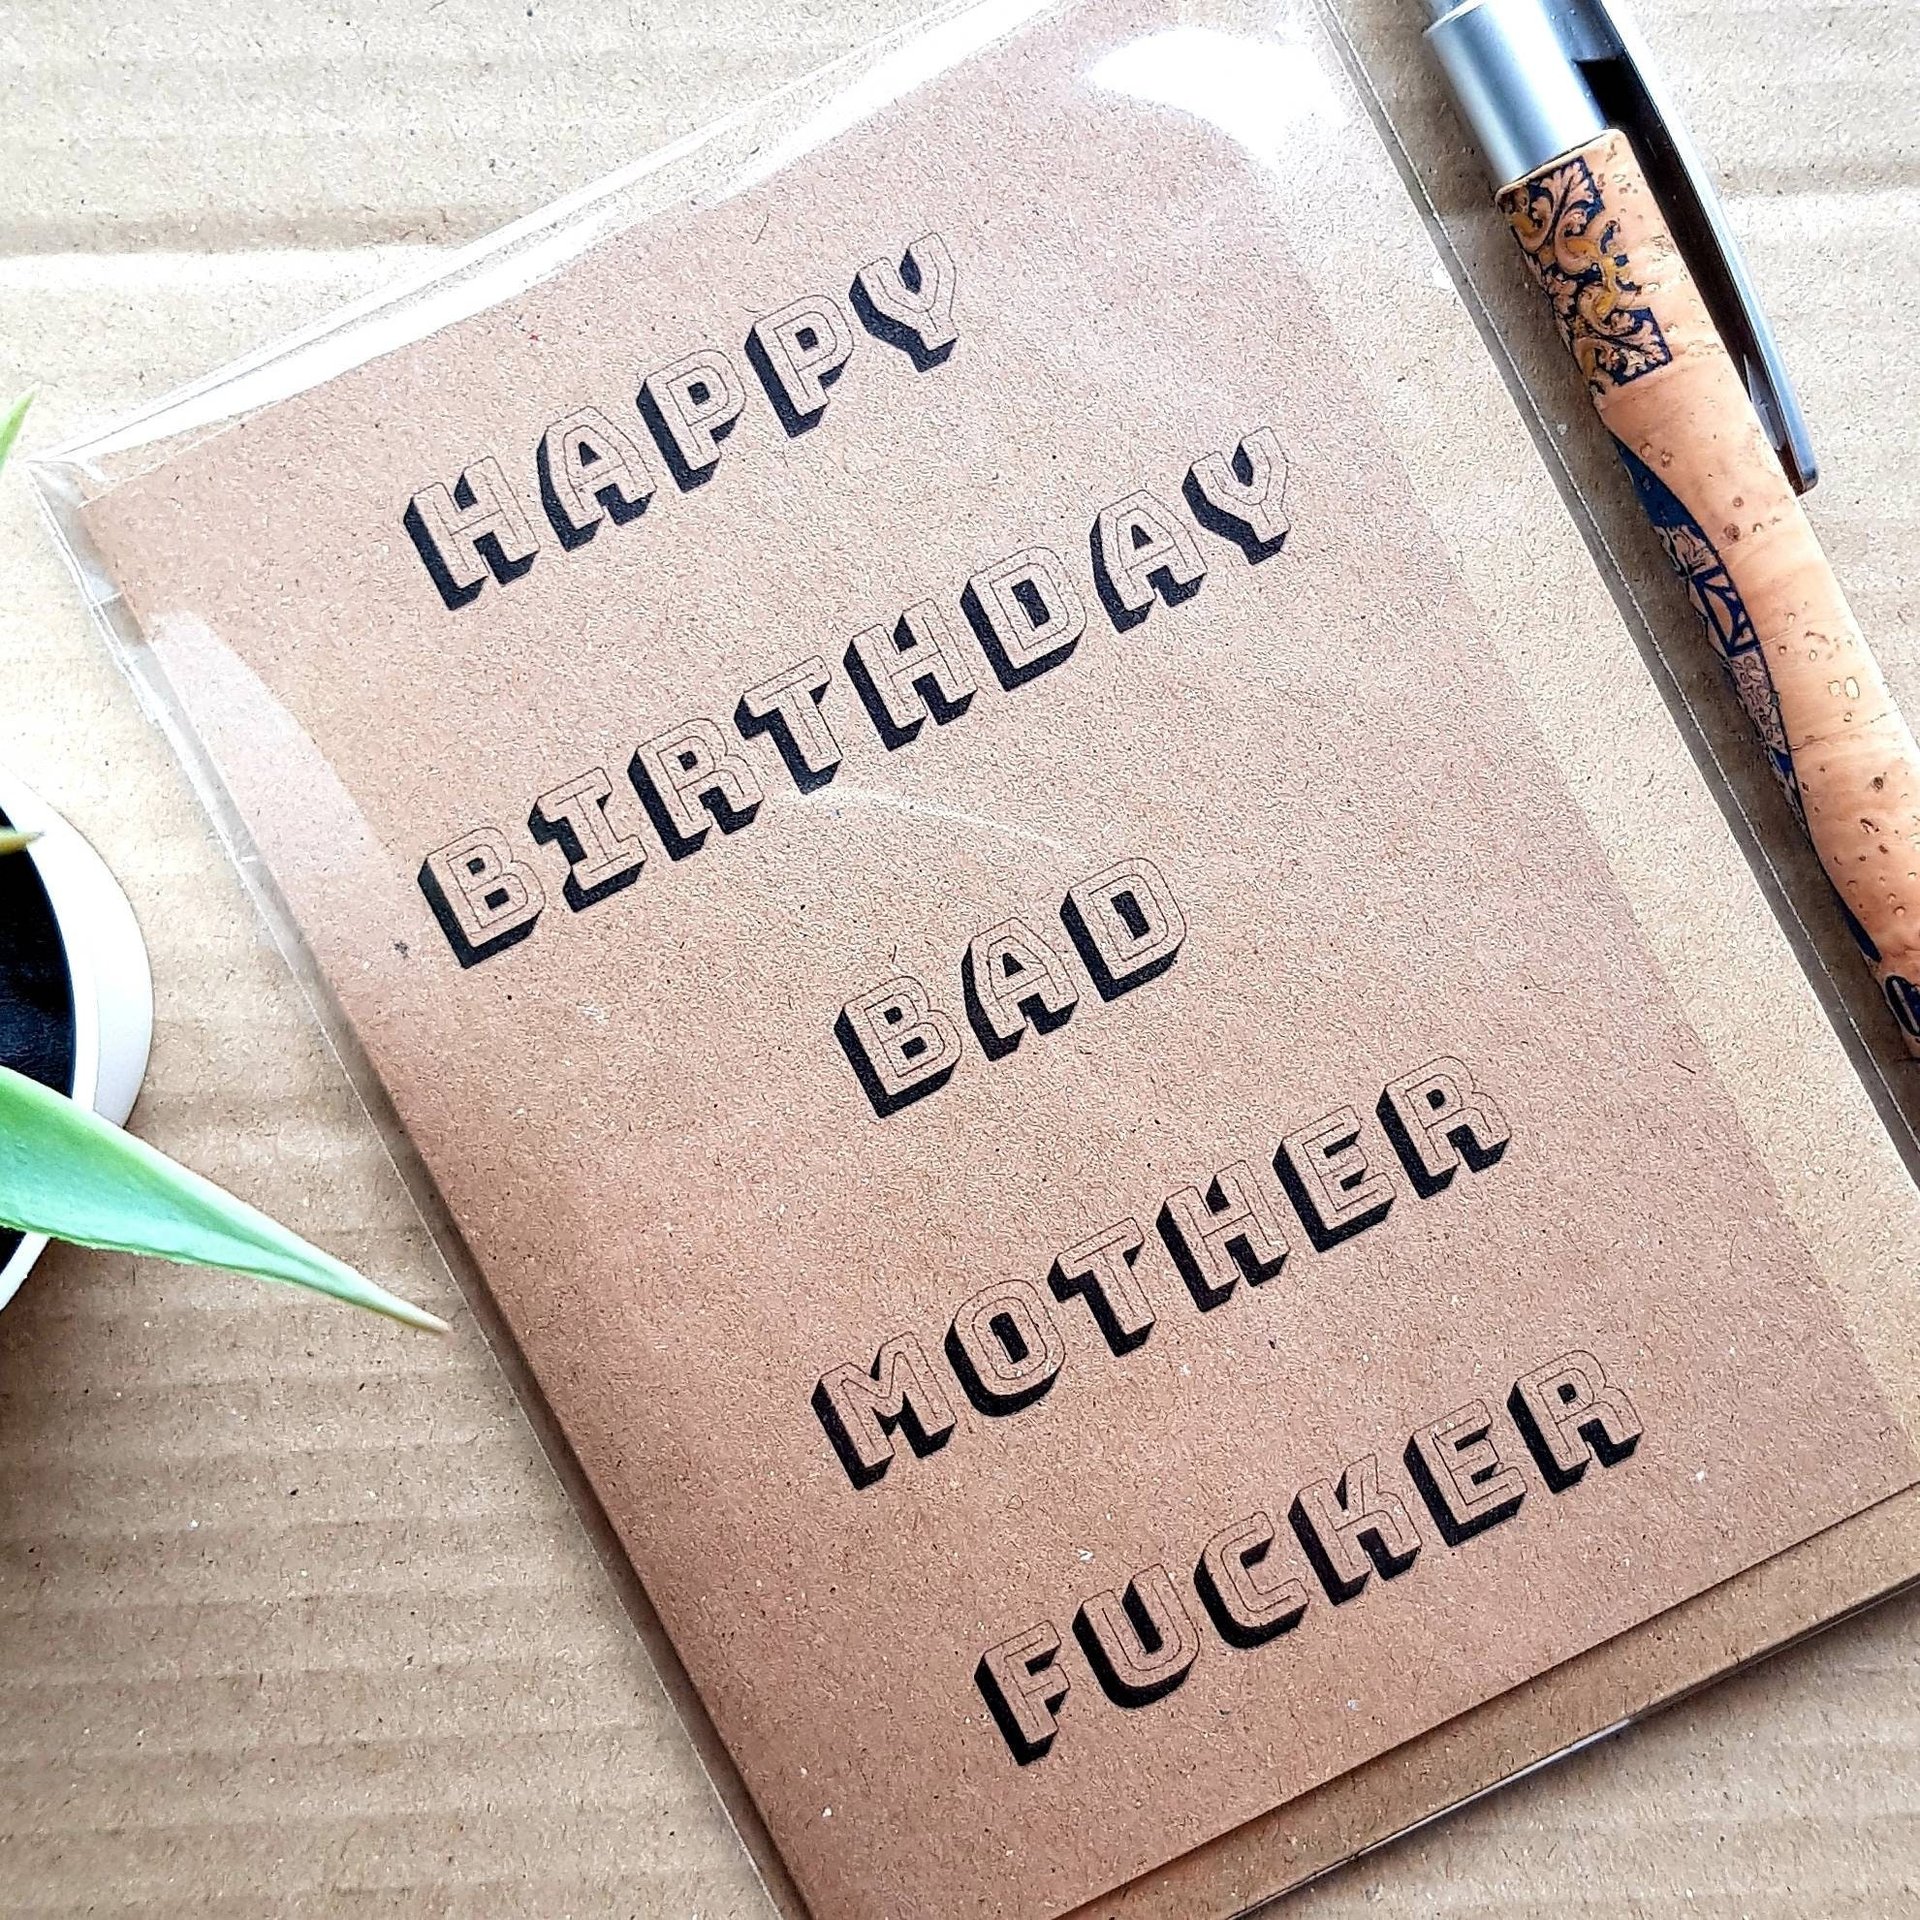 HAPPY
BIRTHDAY
BAD
MOTHER
FUCKER